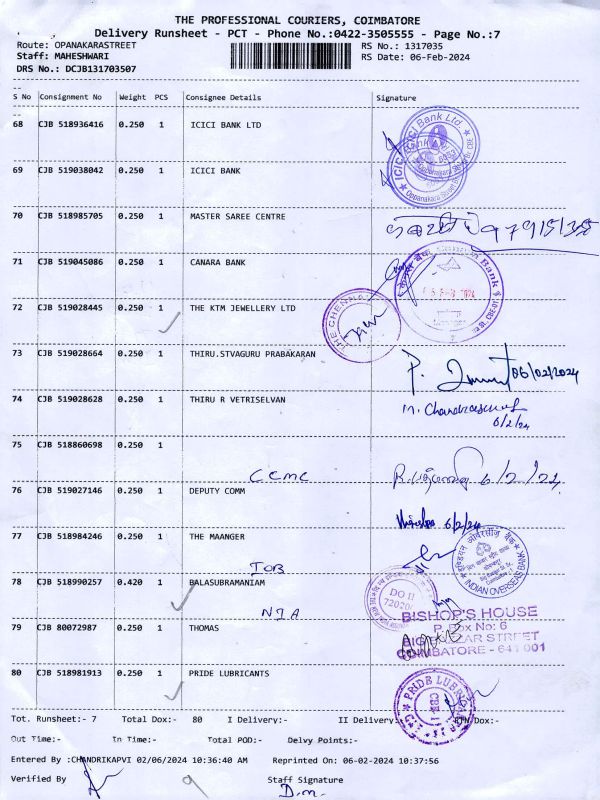 THE PROFESSIONAL COURIERS, COIMBATORE
Delivery Runsheet - PCT - Phone No.:0422-3505555 - Page No.:7
Route: OPANAKARASTREET RS No.: 1317035
Staff: MAHESHWARI RS Date: 06-Feb-2024
DRS No.: DCJB131703507
S No Consignment No Weight PCS Consignee Details Signature
68 CJB 518936416 0.250 1 ICICI BANK LTD
ICICI Bank Ltd.
69 CJB 519038042 0.250 1 ICICI BANK
70 CJB 518985705 0.250 1 MASTER SAREE CENTRE
71 CJB 519045086 0.250 1 CANARA BANK
72 CJB 519028445 0.250 1 THE KTM JEWELLERY LTD
THE CHENNAI
73 CJB 519028664 0.250 1 THIRU.STVAGURU PRABAKARAN
P. 06/02/2024
74 CJB 519028628 0.250 1 THIRU R VETRISELVAN
6/2/24
75 CJB 518860698 0.250 1
CCMC 6/2/24
76 CJB 519027146 0.250 1 DEPUTY COMM
6/2/24
77 CJB 518984246 0.250 1 THE MAANGER
IOB
INDIAN OVERSEAS BANK
78 CJB 518990257 0.420 1 BALASUBRAMANIAM
NIA
DO II
BISHOP'S HOUSE
P. Box No: 6
79 CJB 80072987 0.250 1 THOMAS
STREET
COIMBATORE - 641 001
80 CJB 518981913 0.250 1 PRIDE LUBRICANTS
PRIDE
Tot. Runsheet:- 7 Total Dox:- 80 I Delivery:- II Delivery:- Dox:-
Out Time:- In Time:- Total POD:- Delvy Points:-
Entered By :CHANDRIKAPVI 02/06/2024 10:36:40 AM Reprinted On: 06-02-2024 10:37:56
Verified By Staff Signature
D.m.